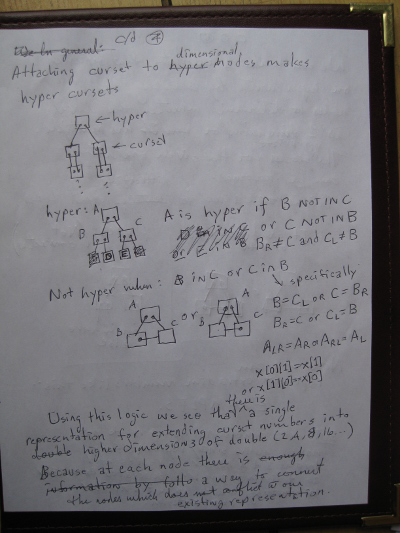 c/d 4
Attaching curset to hyper dimensional nodes makes
hyper cursets
hyper
curset
hyper: A
B C
A is hyper if B NOT IN C
or C NOT IN B
B_R ≠ C and C_L ≠ B
Not hyper when: B in C or C in B
specifically
A or A
B C B C
B = C_L or C = B_R
B_R = C or C_L = B
A_LR = A_R or A_RL = A_L
x[0][1] = x[1]
or x[1][0] = x[0]
Using this logic we see that there is a single
representation for extending curset numbers into
higher dimensions of double (2,4,8,16...)
Because at each node there is
a way to connect
the nodes which does not conflict w our
existing representation.